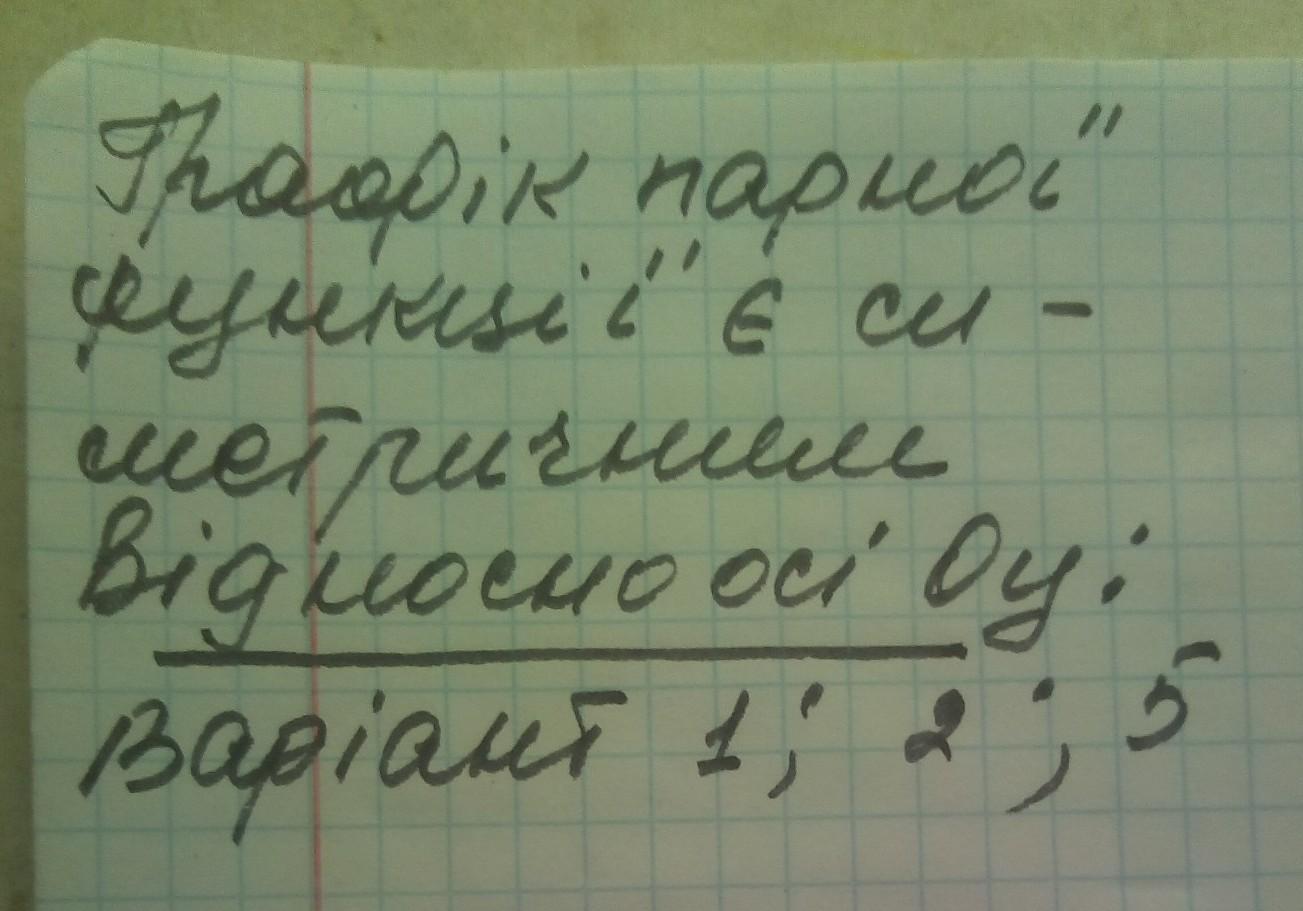 Графік парної
функції є си-
метричним
відносно осі Оу:
Варіант 1; 2; 5